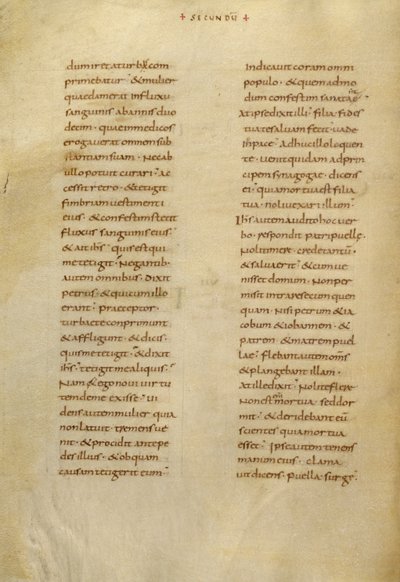 + SECUNDŪ +
dum iret a turbis com
primebatur · & mulier
quaedam erat in fluxu
sanguinis ab annis duo
decim · quae in medicos
erogauerat omnem sub
stantiam suam · Nec ab
ullo potuit curari · ac
cessit retro · & tetigit
fimbriam uestimenti
eius · & confestim stetit
fluxus sanguinis eius
& ait ihs · quis est qui
me tetigit · Negantib:
autem omnibus · Dixit
petrus · & qui cum illo
erant · praeceptor ·
turbae te conprimunt
& affligunt · & dicis ·
quis me tetigit · & dixit
ihs · tetigit me aliquis ·
Nam & ego noui uirtu
tem de me exisse · Ui
dens autem mulier quia
non latuit · tremens ue
nit · & procidit ante pe
des illius · & ob quam
causam tetigerit eum ·
Indicauit coram omni
populo · & quem admo
dum confestim sanata ē
At ipse dixit illi · filia · fides
tua te saluam fecit · uade
in pace · Adhuc illo loquen
te · uenit quidam ad prin
cipem synagogae · dicens
ei · quia mortua est filia
tua · noli uexari illum ·
Ihs autem audito hoc uer
bo · respondit patri puellę ·
Noli timere · crede tantū ·
& salua erit · & cum ue
nisset domum · Non per
misit intrare secum quem
quam · Nisi petrum & ia
cobum & iohannen · &
patrem · & matrem puel
lae · flebant autem om̄s
& plangebant illam ·
at ille dixit · Nolite flere
Non est mortua · sed dor
mit · & deridebant eū
scientes quia mortua
esset · Ipse autem tenens
manum eius · clama
uit dicens · Puella surge ·